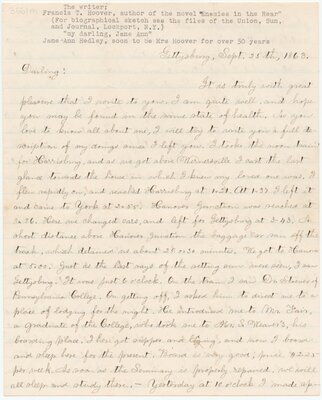 The writer;
Francis T. Hoover, author of the novel "Enemies in the Rear"
(For biographical sketch see the files of the Union, Sun,
and Journal, Lockport, N.Y.)
"my darling, Jane Ann"
Jane-Ann Hedley, soon to be Mrs Hoover for over 50 years
Gettysburg, Sept. 25th, 1863.
Darling:
It is truly with great
pleasure that I write to you. I am quite well, and hope
you may be found in the same state of health. As you
love to know all about me, I will try to write you a full de-
scription of my doings since I left you. I took the noon train
for Harrisburg, and as we got above Wernersville I cast the last
glance towards the house in which I knew my loved one was. I
flew rapidly on, and reached Harrisburg at 1.21. At 1.37 I left it
and came to York at 2.55. Hanover Junction was reached at
3.26. Here we changed cars, and left for Gettysburg at 3.43. A
short distance above Hanover Junction the baggage car ran off the
track, which detained us about 25 or 30 minutes. We got to Hanover
at 5.00. Just as the last rays of the setting sun were seen, I saw
Gettysburg. It was just 6 o'clock. On the train I saw Dr.
Pennsylvania College. On getting off, I asked him to direct me to a
place of lodging for the night. He introduced me to Mr. Fair,
a graduate of the College, who took me to Mr. S. Weaver's, his
boarding place. I here got supper and lodging, and now I board
and sleep here for the present. Board is very good, price $2.25
per week. As soon as the Seminary is properly repaired, we will
all sleep and study there. — Yesterday at 10 o'clock I made ap-